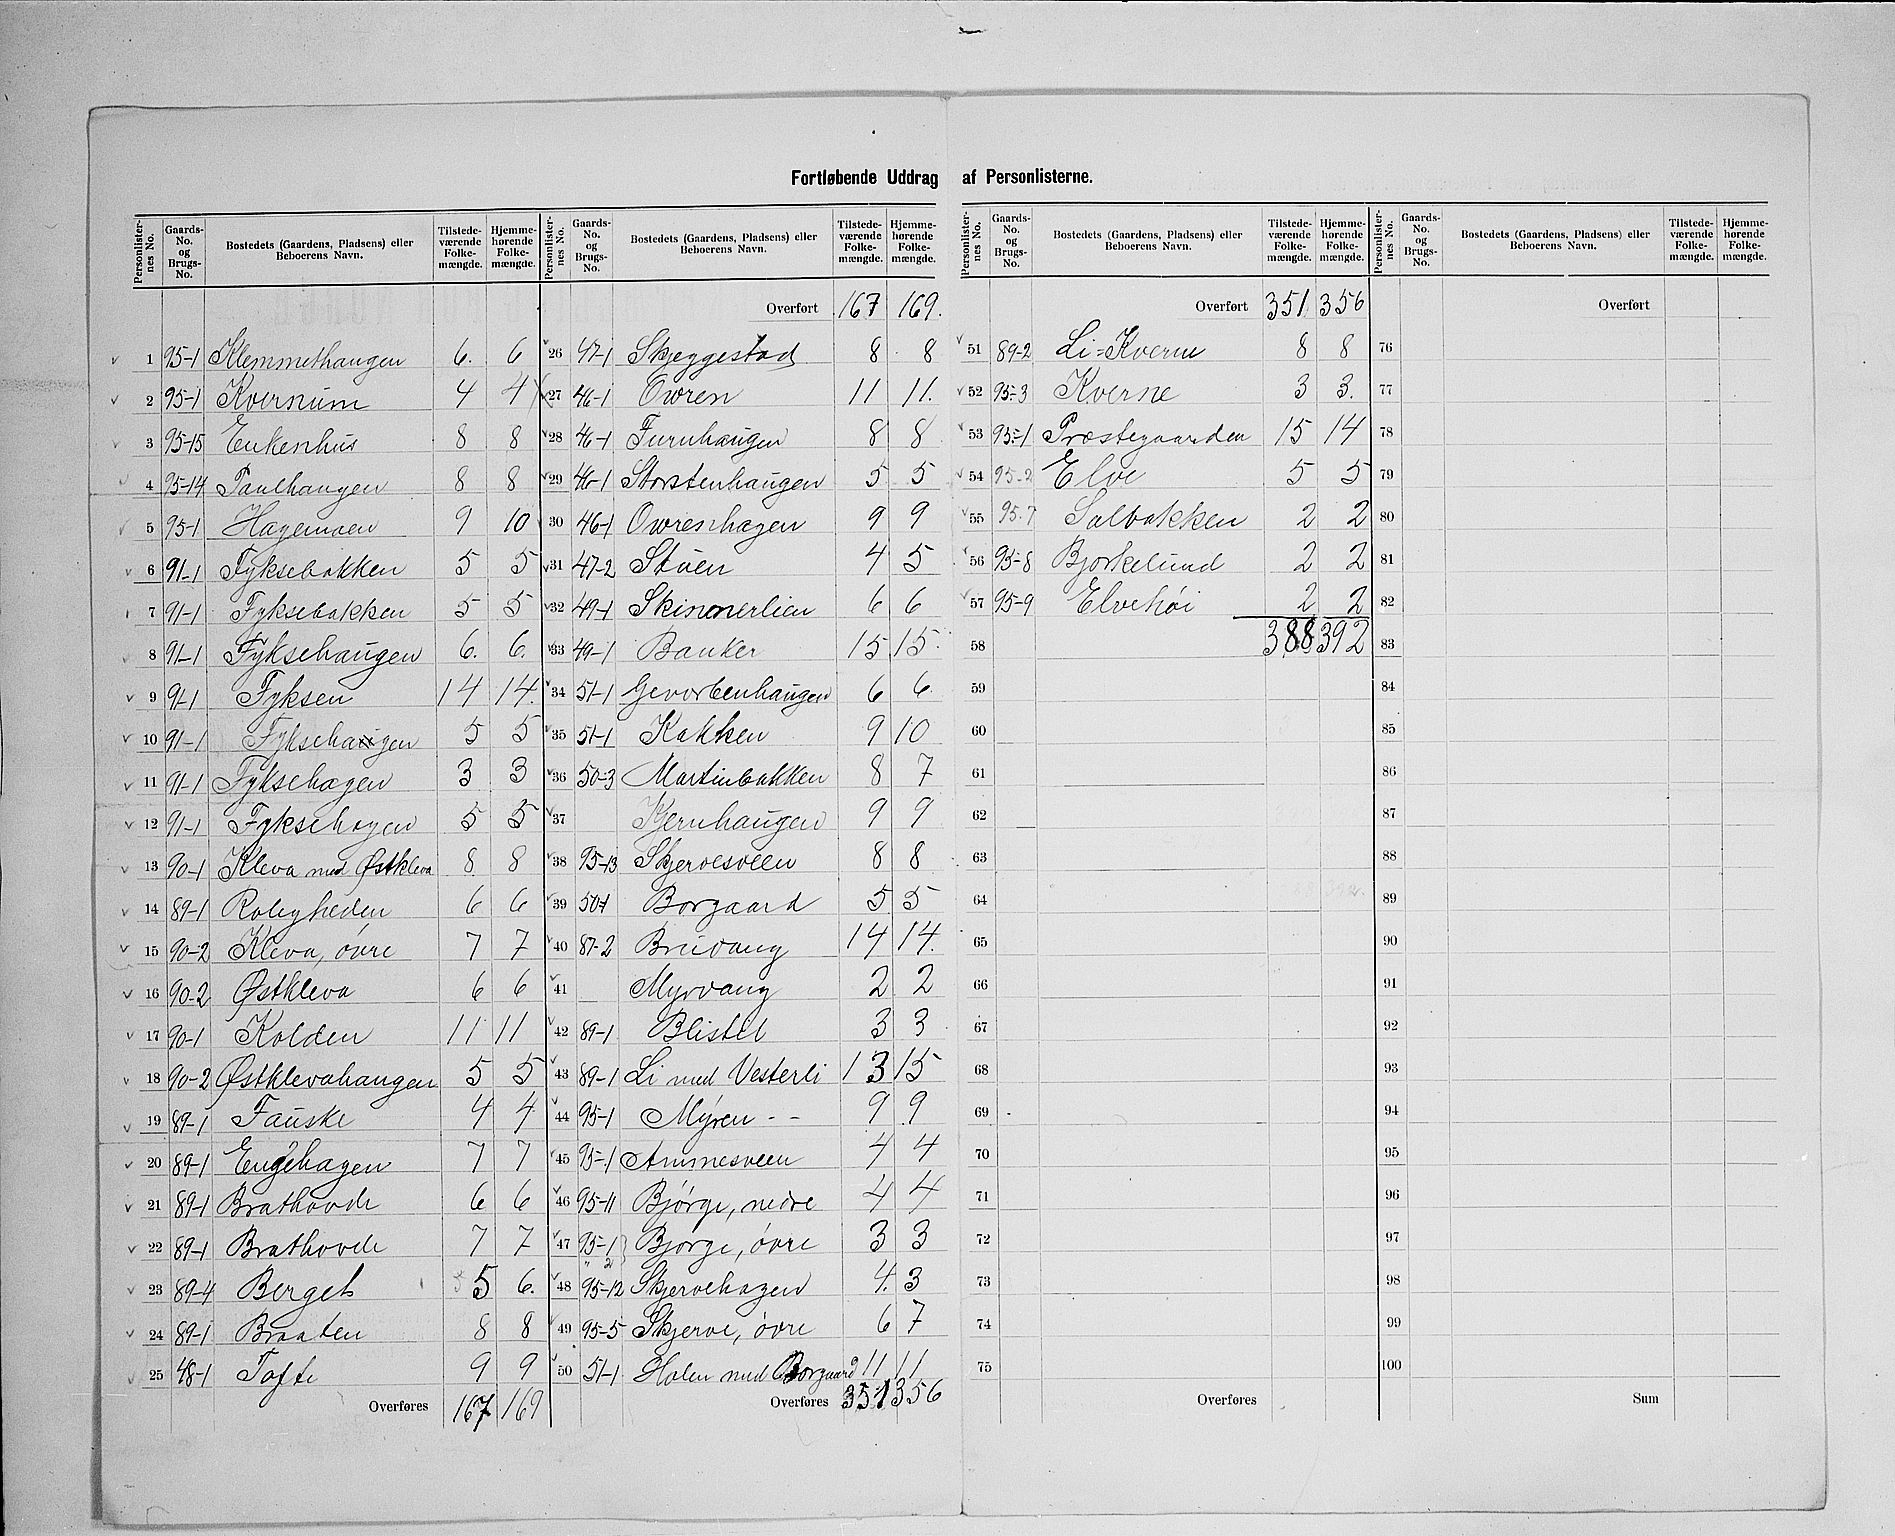 Fortløbende Uddrag af Personlisterne.
Personlister-nes No. Gaards-No. og Brugs-No. Bostedets (Gaardens, Pladsens) eller Beboerens Navn. Tilstede-værende Folke-mængde. Hjemme-hørende Folke-mængde.
1 95-1 Klemmethaugen 6. 6
2 95-1 Kvernum 4 4
3 95-15 Enkenhus 8 8
4 95-14 Paulhaugen 8 8
5 95-1 Hagemoen 9 10
6 91-1 Fyksebakken 5 5
7 91-1 Fyksebakken 5 5
8 91-1 Fyksehaugen 6. 6.
9 91-1 Fyksen 14 14.
10 91-1 Fyksehaugen 5 5
11 91-1 Fyksehagen 3 3
12 91-1 Fyksehagen 5 5
13 90-1 Kleva med Østkleva 8 8
14 89-1 Roligheden 6 6
15 90-2 Kleva, övre 7 7
16 90-2 Østkleva 6 6
17 90-1 Kolden 11 11
18 90-2 Østklevahaugen 5 5
19 89-1 Fauske 4 4
20 89-1 Engehagen 7 7
21 89-1 Brathovde 6 6
22 89-1 Brathovde 7 7
23 89-4 Berget 5 6.
24 89-1 Braaten 8 8
25 48-1 Tofte 9 9
Overføres 167 169
Personlister-nes No. Gaards-No. og Brugs-No. Bostedets (Gaardens, Pladsens) eller Beboerens Navn. Tilstede-værende Folke-mængde. Hjemme-hørende Folke-mængde.
Overført 167 169.
26 47-1 Skjeggestad 8 8
27 46-1 Owren 11 11.
28 46-1 Furuhaugen 8 8
29 46-1 Storstenhaugen 5 5
30 46-1 Owrenhagen 9 9
31 47-2 Stuen 4 5
32 49-1 Skinnerlien 6 6
33 49-1 Banker 15 15.
34 51-1 Gevorbenhaugen 6 6.
35 51-1 Kakken 9 10
36 50-3 Martinbakken 8 7
37 Kjernhaugen 9 9
38 95-13 Skjervesveen 8 8
39 50-1 Borgaard 5 5
40 87-2 Bruvang 14 14.
41 Myrvang 2 2
42 89-1 Blistel 3 3
43 89-1 Li med Vesterli 13 15
44 95-1 Myren - - 9 9
45 95-1 Ammesveen 4 4
46 95-11 Bjørge, nedre 4 4
47 95-1 Bjørge, övre 3 3
" 2
48 95-12 Skjervehagen 4. 3
49 95-5 Skjerve, övre 6 7
50 51-1 Holen med Borgaard 11 11
Overføres 351 356
Personlister-nes No. Gaards-No. og Brugs-No. Bostedets (Gaardens, Pladsens) eller Beboerens Navn. Tilstede-værende Folke-mængde. Hjemme-hørende Folke-mængde.
Overført 351 356
51 89-2 Li=Kverne 8 8
52 95-3 Kverne 3 3.
53 95-1 Præstegaarden 15 14
54 95-2 Elve 5 5
55 95-7 Solbakken 2 2
56 95-8 Bjørkelund 2 2
57 95-9 Elvehøi 2 2
58 388 392
59
60
61
62
63
64
65
66
67
68
69
70
71
72
73
74
75
Overføres
Personlister-nes No. Gaards-No. og Brugs-No. Bostedets (Gaardens, Pladsens) eller Beboerens Navn. Tilstede-værende Folke-mængde. Hjemme-hørende Folke-mængde.
Overført
76
77
78
79
80
81
82
83
84
85
86
87
88
89
90
91
92
93
94
95
96
97
98
99
100
Sum